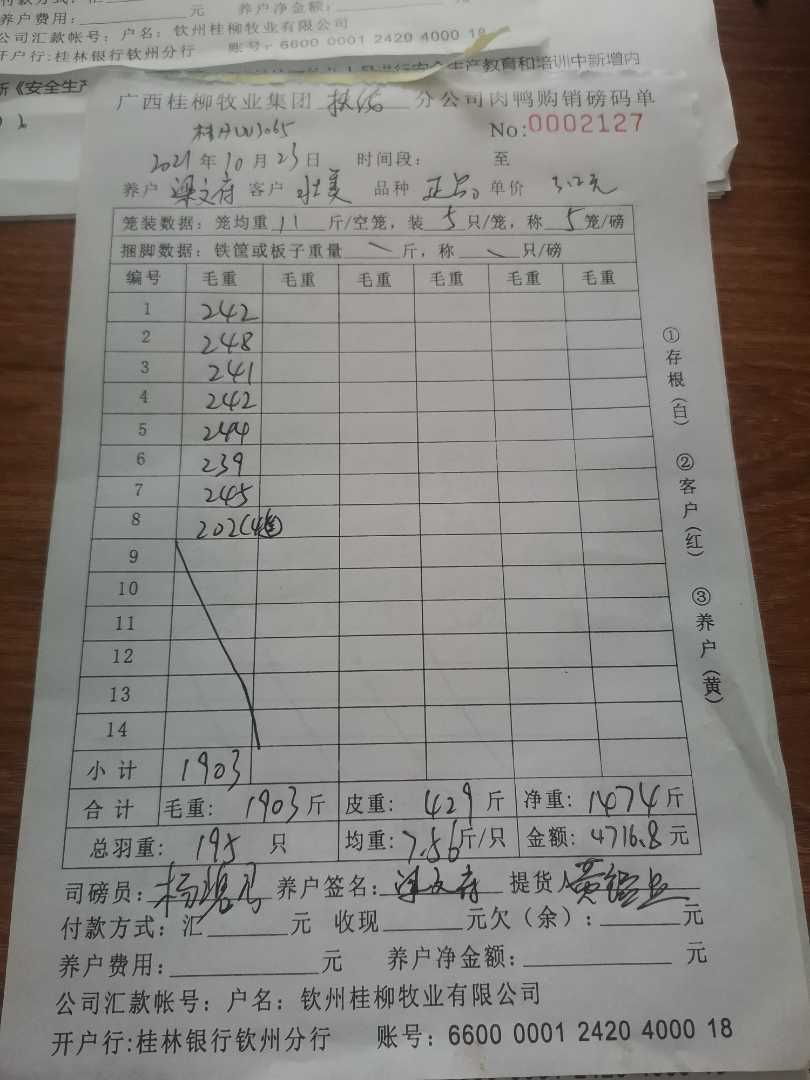 养户费用: 元 养户净金额:
公司汇款帐号: 户名: 钦州桂柳牧业有限公司
开户行:桂林银行钦州分行 账号: 6600 0001 2420 4000 18
进行安全生产教育和培训中新增内
新《安全生产
广西桂柳牧业集团 扶绥 分公司肉鸭购销磅码单
No:0002127
2021年10月23日 时间段: 至
养户 梁文府 客户 壮美 品种 正品 单价 3.2元
笼装数据: 笼均重 11 斤/空笼, 装 5 只/笼, 称 5 笼/磅
捆脚数据: 铁筐或板子重量 \ 斤, 称 \ 只/磅
编号 毛重 毛重 毛重 毛重 毛重 毛重
1 242
2 248
3 241
4 242
5 244
6 239
7 245
8 202(4笼)
9
10
11
12
13
14
小计 1903
合计 毛重: 1903斤 皮重: 429斤 净重: 1474斤
总羽重: 195 只 均重: 7.56斤/只 金额: 4716.8元
司磅员: 养户签名: 梁文府 提货人
付款方式: 汇 元 收现 元欠(余): 元
养户费用: 元 养户净金额: 元
公司汇款帐号: 户名: 钦州桂柳牧业有限公司
开户行:桂林银行钦州分行 账号: 6600 0001 2420 4000 18
①存根(白) ②客户(红) ③养户(黄)